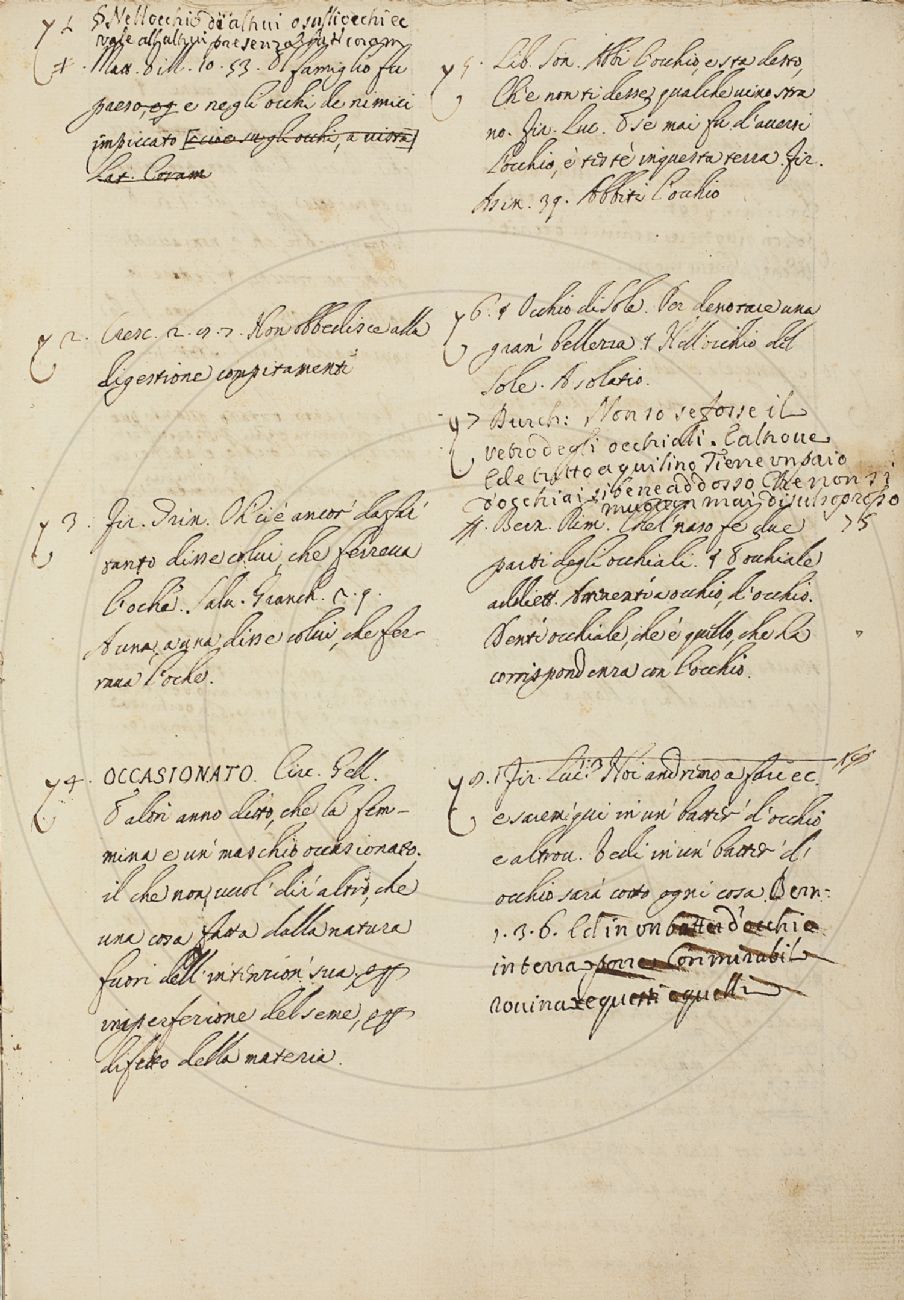 1. § Nell occhio di altrui o su gli occhi ec
vale all altrui presenza Lat. coram
‡. Matt. Vill. 10. 53. Il famiglio fu
preso, e negli occhi de nimici
impiccato [cioè su gli occhi, a vista]
Lat. Coram
2. Cresc. 2. Non obbedisce alla
digestione compitamente
3. Fir. Trin. Oh ci è ancor da far
tanto disse colui, che ferrava
l'oche. Salv. Granch. 2. 9.
A una, a una, disse colui, che fer-
rava l'oche.
4. OCCASIONATO. Circ. Gell.
E altri anno ditto, che la fem-
mina è un maschio occasionato.
il che non vuol dir altro, che
una cosa fatta dalla natura
fuori dell' intenzion sua, o p
imperfezione del seme, o p
difetto della materia.
5. Lib. Son. Abbi l'occhio, e sta desto,
Ch'e non ti desse qualche vino stra
no. Fir. Luc. E se mai fu d'averci
l'occhio, è in questa terra. Fir.
Asin. 39. Abbiti l'occhio
6. § Occhio di Sole. Per denotare una
gran bellezza § Nell occhio del
Sole. A solatio.
7 Burch: Non so se fosse il
vetro degli occhiali. E altrove
Ed è tutto aquilino Tienne un paio
d'occhiai sì bene addosso Che non si
muoven mai di sul suo proprio
‡. Bern. Rim. E nel naso fe due 75
parti degli occhiali. § Occhiale
addiett. Attinente a occhio, d'occhio.
Dente occhiale, che è quello, che ha
corrispondenza con l'occhio.
9. Fir. Luc. Noi andremo a far ec.
e sarem qui in un batter d'occhio
e altrov. Vedi in un batter d'
occhio sarà cotto ogni cosa Bern:
1. 3. 6. Ed in un batter d'occhio
in terra con mirabil
rovina e questi e quelli